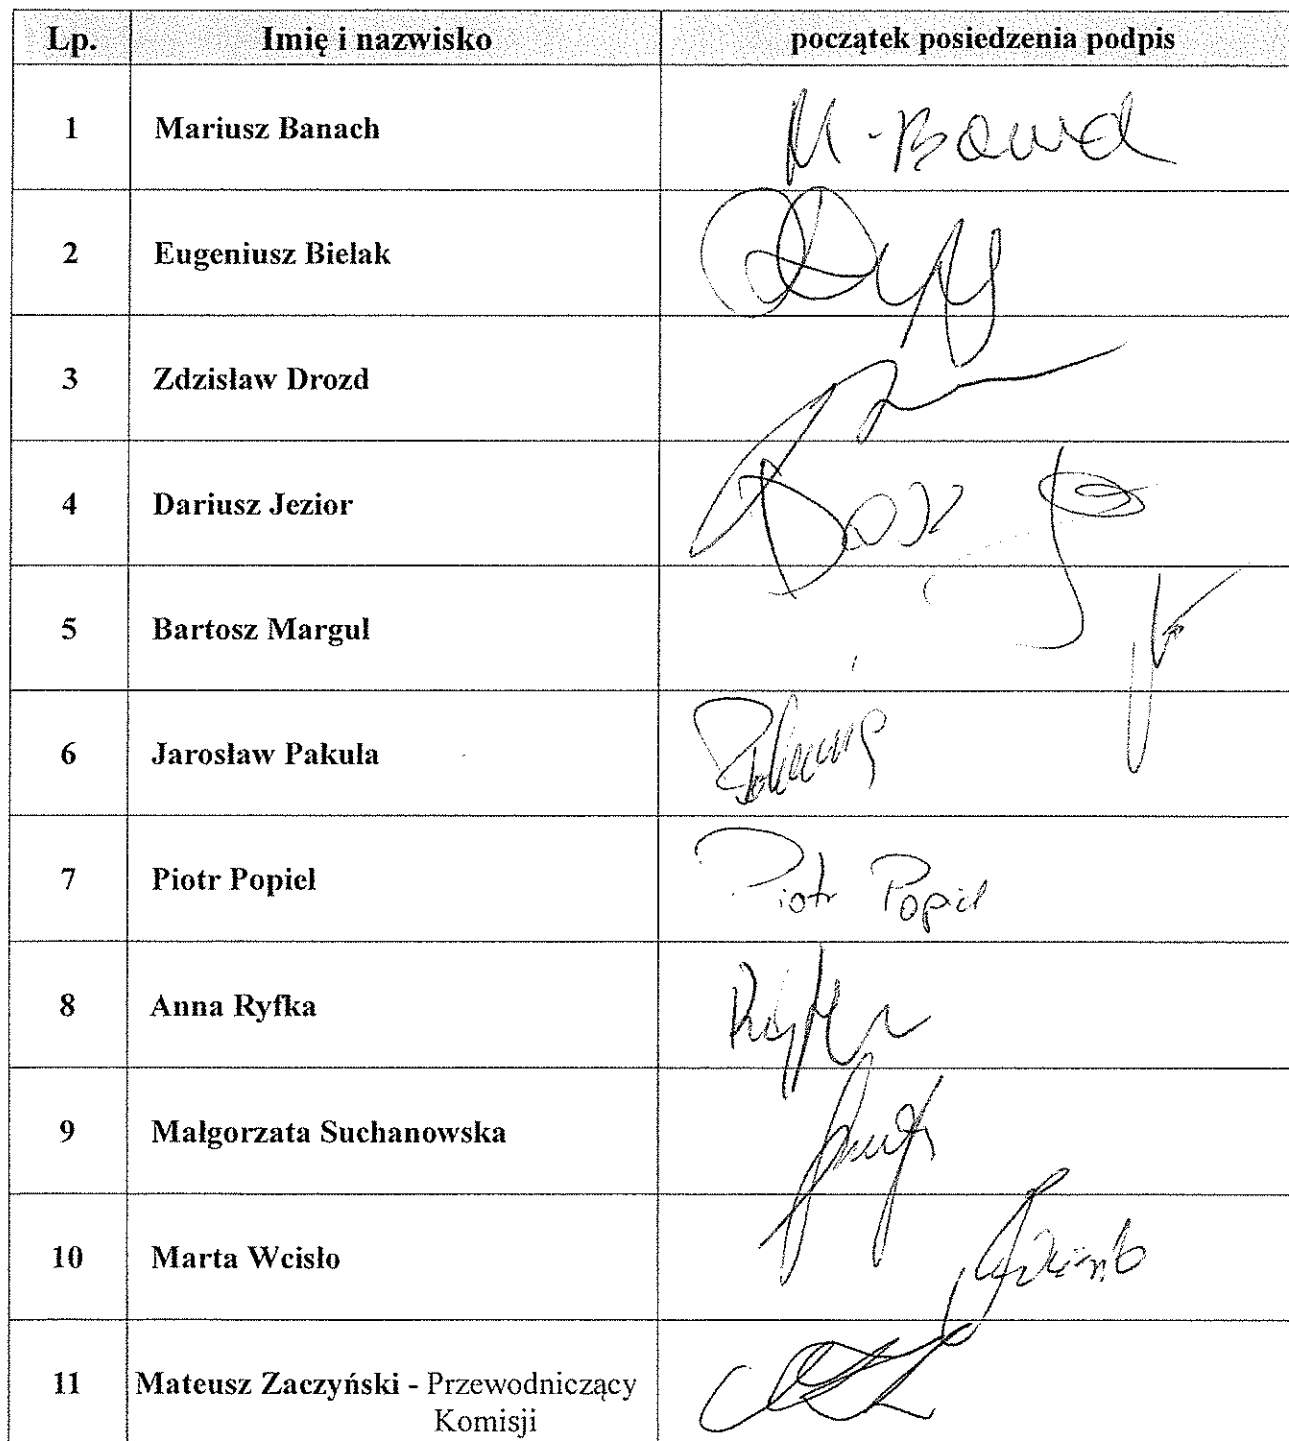 Lp. Imię i nazwisko początek posiedzenia podpis
1 Mariusz Banach M. Banach
2 Eugeniusz Bielak
3 Zdzisław Drozd
4 Dariusz Jezior
5 Bartosz Margul
6 Jarosław Pakuła
7 Piotr Popiel Piotr Popiel
8 Anna Ryfka
9 Małgorzata Suchanowska
10 Marta Wcisło
11 Mateusz Zaczyński - Przewodniczący
Komisji